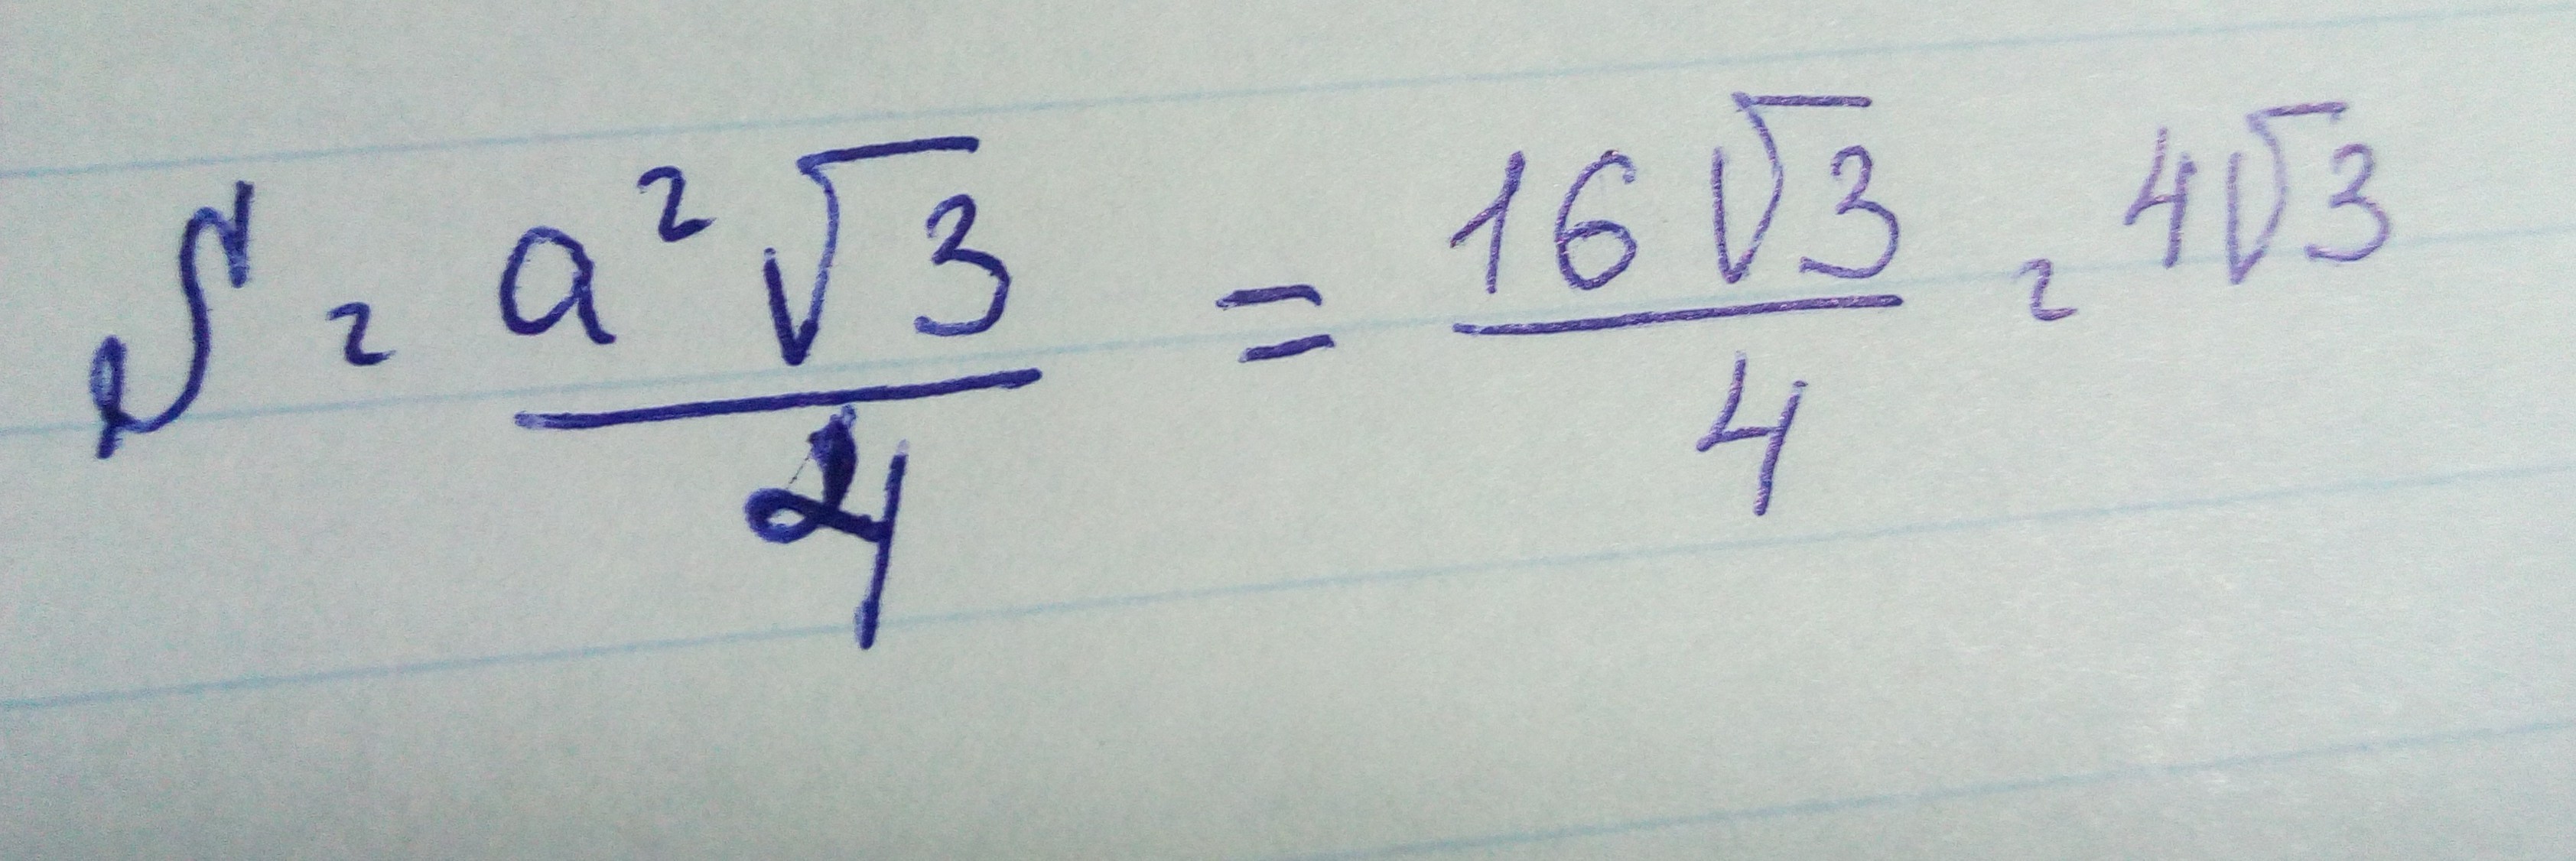 S = a²√3/4 = 16√3/4 = 4√3